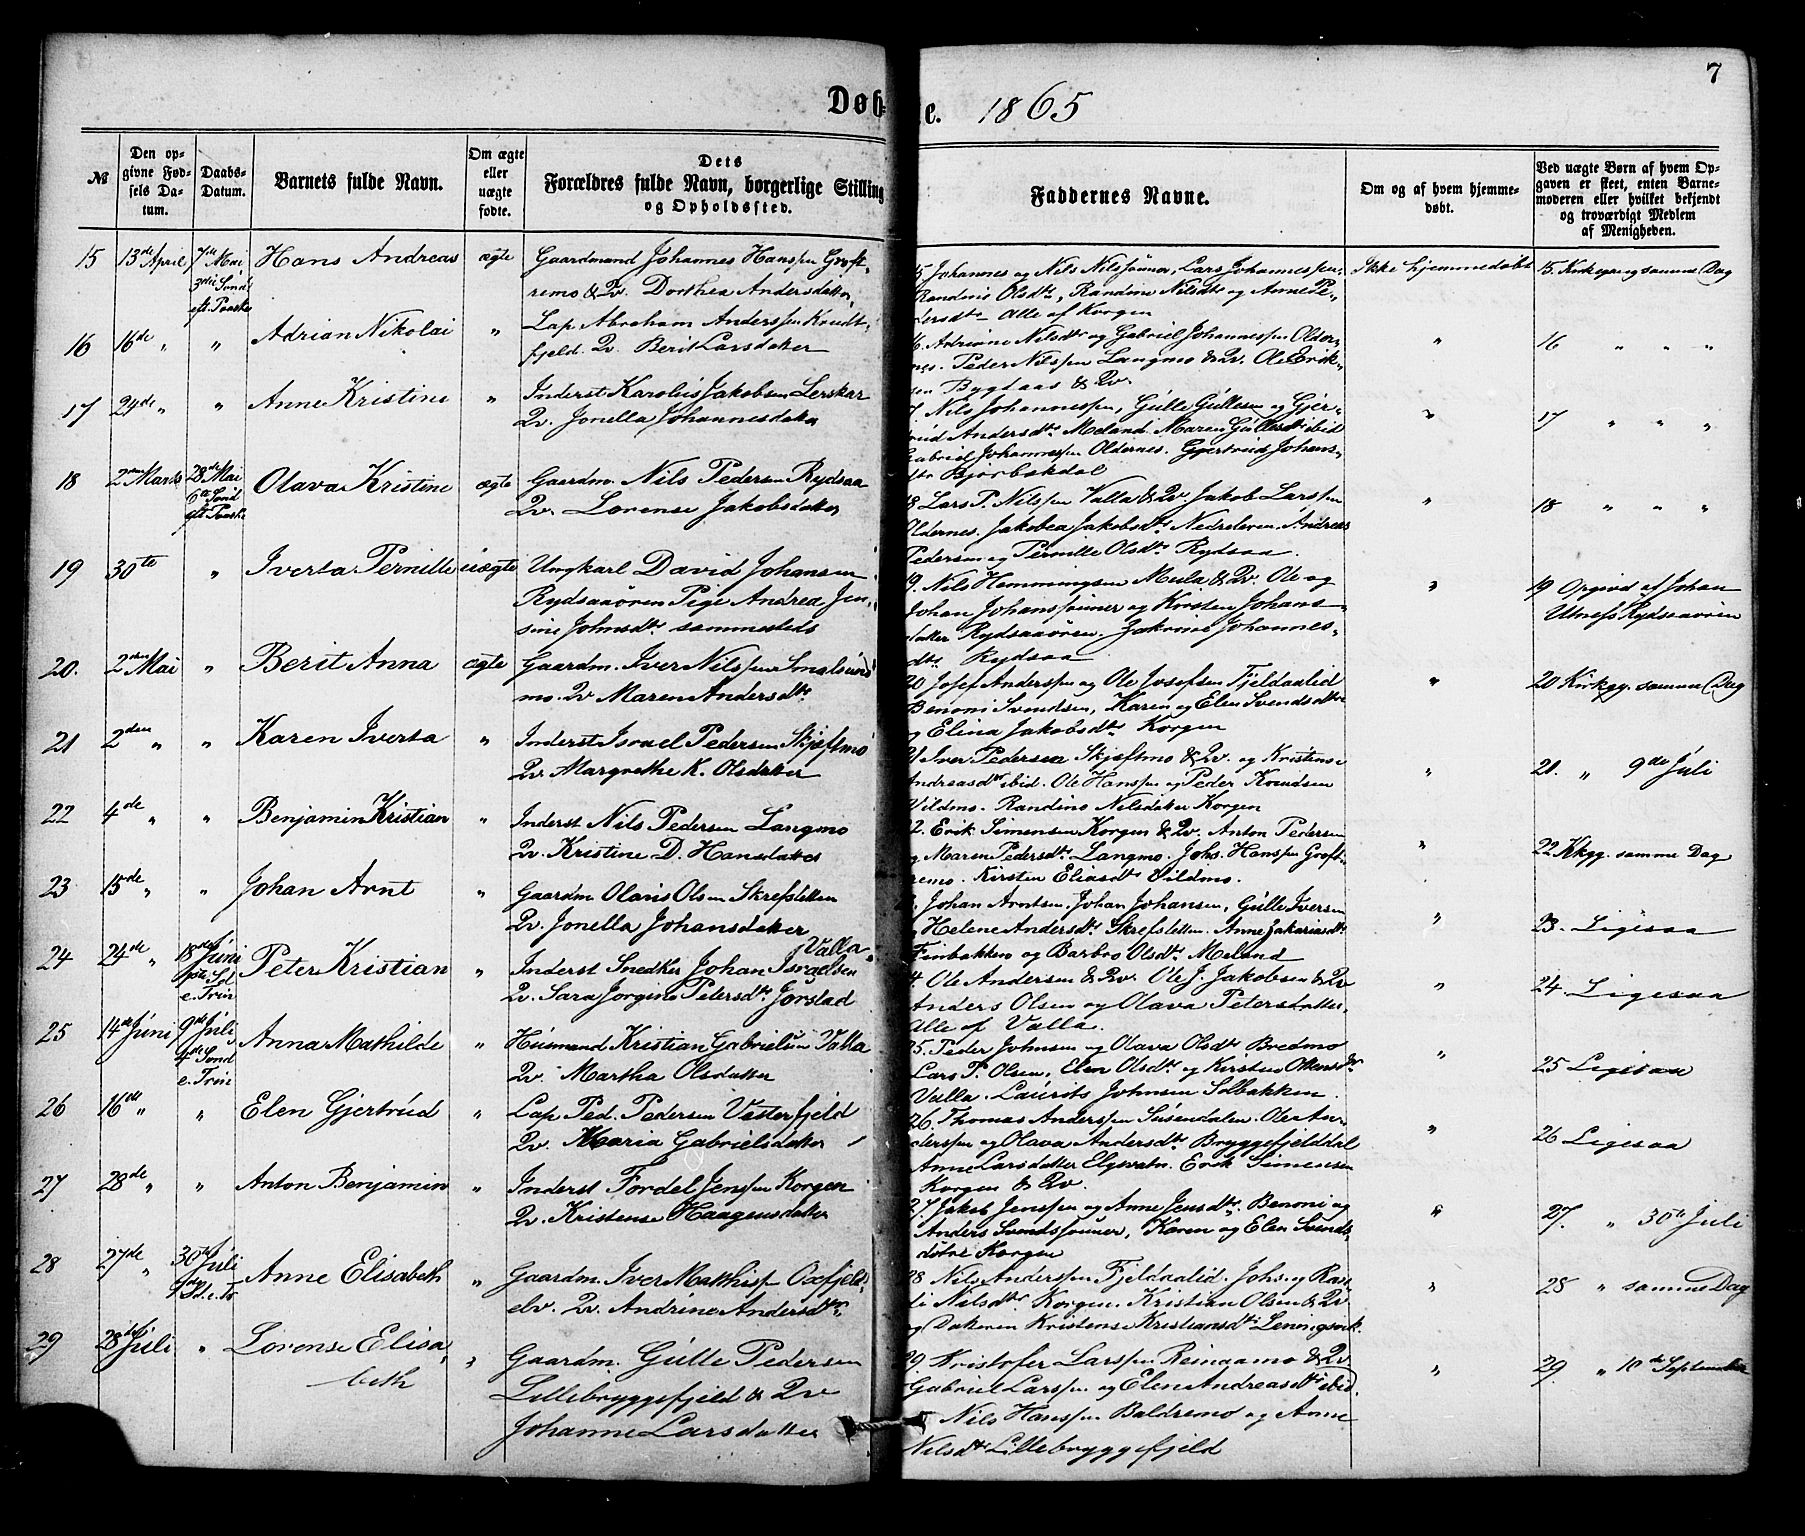 7
Døbte. 1865
№
Den opgivne Fødsels Datum.
Daabs-Datum.
Barnets fulde Navn.
Om ægte eller uægte fødte.
Dets Forældres fulde Navn, borgerlige Stilling og Opholdssted.
Faddernes Navne.
Om og af hvem hjemmedøbt.
Ved uægte Børn af hvem Opgaven er skeet, enten Barnemoderen eller hvilket bekjendt og troværdigt Medlem af Menigheden.
15 13de April 7de Mai 3die Sønd eft. Paaske Hans Andreas ægte Gaardmand Johannes Hanssen Groft-
remo & Qv. Dorthea Andersdatter
15 Johannes og Nils Nilssønner, Lars Johannessen
Randine Olsdtr, Randine Nilsdtr og Anne Pe-
dersdtr Alle af Korgen
Ikke hjemmedøbt
15. Kirkegang samme Dag
16 16de " " Adrian Nikolai " Lap Abraham Anderssen Krudt-
fjeld. Qv. Berit Larsdatter
16. Adriane Nilsdtr og Gabriel Johannessen Older-
nes. Peder Nilssen Langmo & Qv. Ole Erik-
sen Bygtaas & Qv.
"
16 " " "
17 24de " " Anne Kristine " Inderst Karolius Jakobsen Lerskar
Qv. Jonella Johannesdatter
17 Nils Johannessen, Gulle Gullesen og Gjer-
trud Andersdtr Meland. Maren Gullesdtr ibid
Gabriel Johannessen Oldernes. Gjertrud Johans-
dtr Bjørbækdal
"
17 " " "
18 2den Marts 28de Mai 6te Sønd eft Paaske Olava Kristine ægte Gaardm. Nils Pedersen Rydsaa
Qv. Lorense Jakobsdatter
18 Lars P. Nilssen Valla & Qv. Jakob Larssen
Oldernes. Jakobea Jakobsdtr Nedreleren. Andreas
Pedersen og Pernille Olsdtr Rydsaa.
"
18 " " "
19 30te " Iverta Pernille uægte Ungkarl David Johansen
Rydsaaøren Pige Andrea Jen-
sine Johnsdtr sammesteds
19. Nils Hemmingsen Mula & Qv. Ole og
Johan Johanssønner og Kirsten Johans
datter Rydsaaøren. Jakrine Johannes-
dtr Rydsaa
"
19 Opgivd af Johan
Umefs Rydsaaøren
20. 2den Mai " Berit Anna ægte Gaardm. Iver Nilssen Smalsund-
mo. Qv Maren Andersdtr
20 Josef Anderssen og Ole Josefsen Fjeldaalid
Benoni Svendsen, Karen og Elen Svendsdtre
og Elina Jakobsdtr Korgen
"
20 Kirkgg. samme Dag
21 2den " " Karen Iverta " Inderst Israel Pedersen Skjæftmo
Qv. Margrethe K. Olsdatter
21 Iver Pedersen Skjæftmo & Qv. og Kristine
Andreasdtr ibid. Ole Hanssen og Peder Knudsen
Vildmo. Randine Nilsdatter Korgen
"
21. " 9de Juli
22 4de " " Benjamin Kristian " Inderst Nils Pedersen Langmo
Qv. Kristine D. Hansdatter
22. Erik Simonsen Korgen & Qv. Anton Pedersen
og Maren Pedersdtr Langmo. Johs. Hanssen Groft-
remo. Kirsten Eliasdtr Vildmo.
"
22 Kkgg. samme Dag
23 15de " " Johan Arnt " Gaardm Olaus Olsen Skrefsletten
Qv. Jonella Johansdatter
Johan Arntsen, Johan Johansen, Gulle Iversen
og Helene Andersdtr Skrefsletten. Anne Zakariasdtr
Finbakken og Barbro Olsdtr Meland
"
23. Ligesaa
24 24de " 18de Juni 1ste Sd e. Trin Peter Kristian " Inderst Snedker Johan Israelsen Valla
Qv. Sara Jorgine Petersdtr Jørstad
24 Ole Andersen & Qv. Ole J. Jakobsen & Qv
Anders Olsen og Olava Petersdatter,
Alle af Valla.
"
24. Ligesaa
25 14de Juni 9de Juli 4de Sønd e. Trin Anna Mathilde " Husmand Kristian Gabrielsen Valla
Qv. Martha Olsdatter
25. Peder Johnsen og Olava Olsdtr Bredmo
Lars P. Olsen, Elen Olsdtr og Kirsten Ottensdtr
Valla. Laurits Johnsen Solbakken
"
25 Ligesaa
26 16de " " Elen Gjertrud " Lap Ped. Pedersen Vesterfjeld
Qv. Maria Gabrielsdatter
26. Thomas Anderssen Susendalen. Ole An-
derssen og Olava Andersdtr Bryggefjelddal
Anne Larsdatter Elgsvatn. Erik Simensen
Korgen & Qv.
"
26 Ligesaa
27 28de " " Anton Benjamin " Inderst Fordel Jenssen Korgen
Qv. Kristense Haagensdatter
27 Jakob Jenssen og Anne Jensdtr. Benoni og
Anders Svendssønner, Karen og Elen Svends-
døtre Korgen
"
27. " 30te Juli
28 27de " 30te Juli 7de Sd. e. Tr Anne Elisabeth " Gaardm. Iver Mathiss Oxfjeld-
elv. Qv. Andrine Andersdtr
28 Nils Anderssen Fjeldaalid. Johs. og Ras-
li Nilsdtr Korgen. Kristian Olsen & Qv
og Datteren Kristense Kristiansdtr Leningsvik.
"
28 " samme Dag
29 28de Juli " Lorense Elisa-
beth " Gaardm. Gulle Pedersen
Lillebryggefjeld & Qv
Johanne Larsdatter
29 Kristofer Larssen Reinaamo & Qv
Gabriel Larssen og Elen Andreasdtr ibid.
Nils Hanssen Baldremo og Anne
Nilsdtr Lillebryggefjeld
"
29. " 10de September